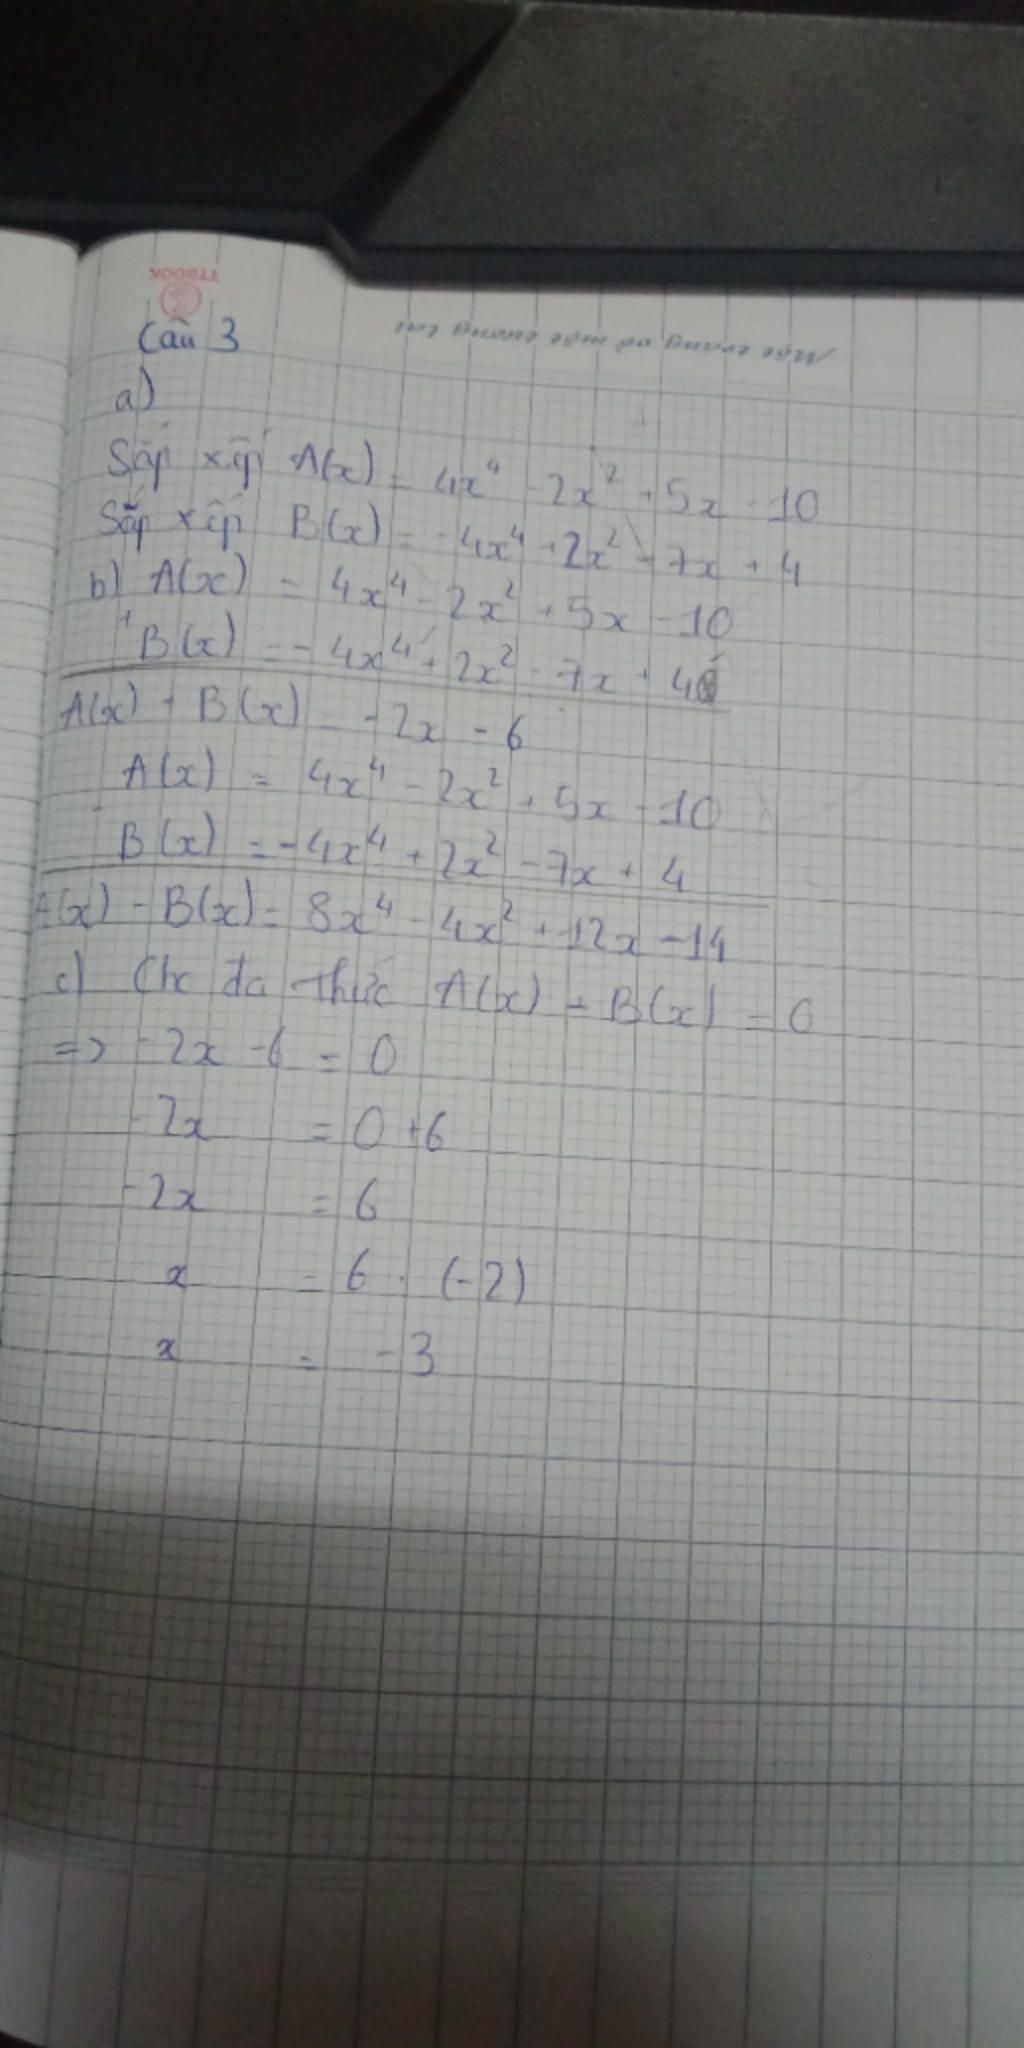 TTBOOK
Câu 3
a)
Sắp xếp A(x) = 4x⁴ - 2x² + 5x - 10
Sắp xếp B(x) = -4x⁴ + 2x² - 7x + 4
b) A(x) = 4x⁴ - 2x² + 5x - 10
+ B(x) = -4x⁴ + 2x² - 7x + 4
A(x) + B(x) = -2x - 6
A(x) = 4x⁴ - 2x² + 5x - 10
- B(x) = -4x⁴ + 2x² - 7x + 4
A(x) - B(x) = 8x⁴ - 4x² + 12x - 14
c) Cho đa thức A(x) + B(x) = 0
=> -2x - 6 = 0
-2x = 0 + 6
-2x = 6
x = 6 : (-2)
x = -3